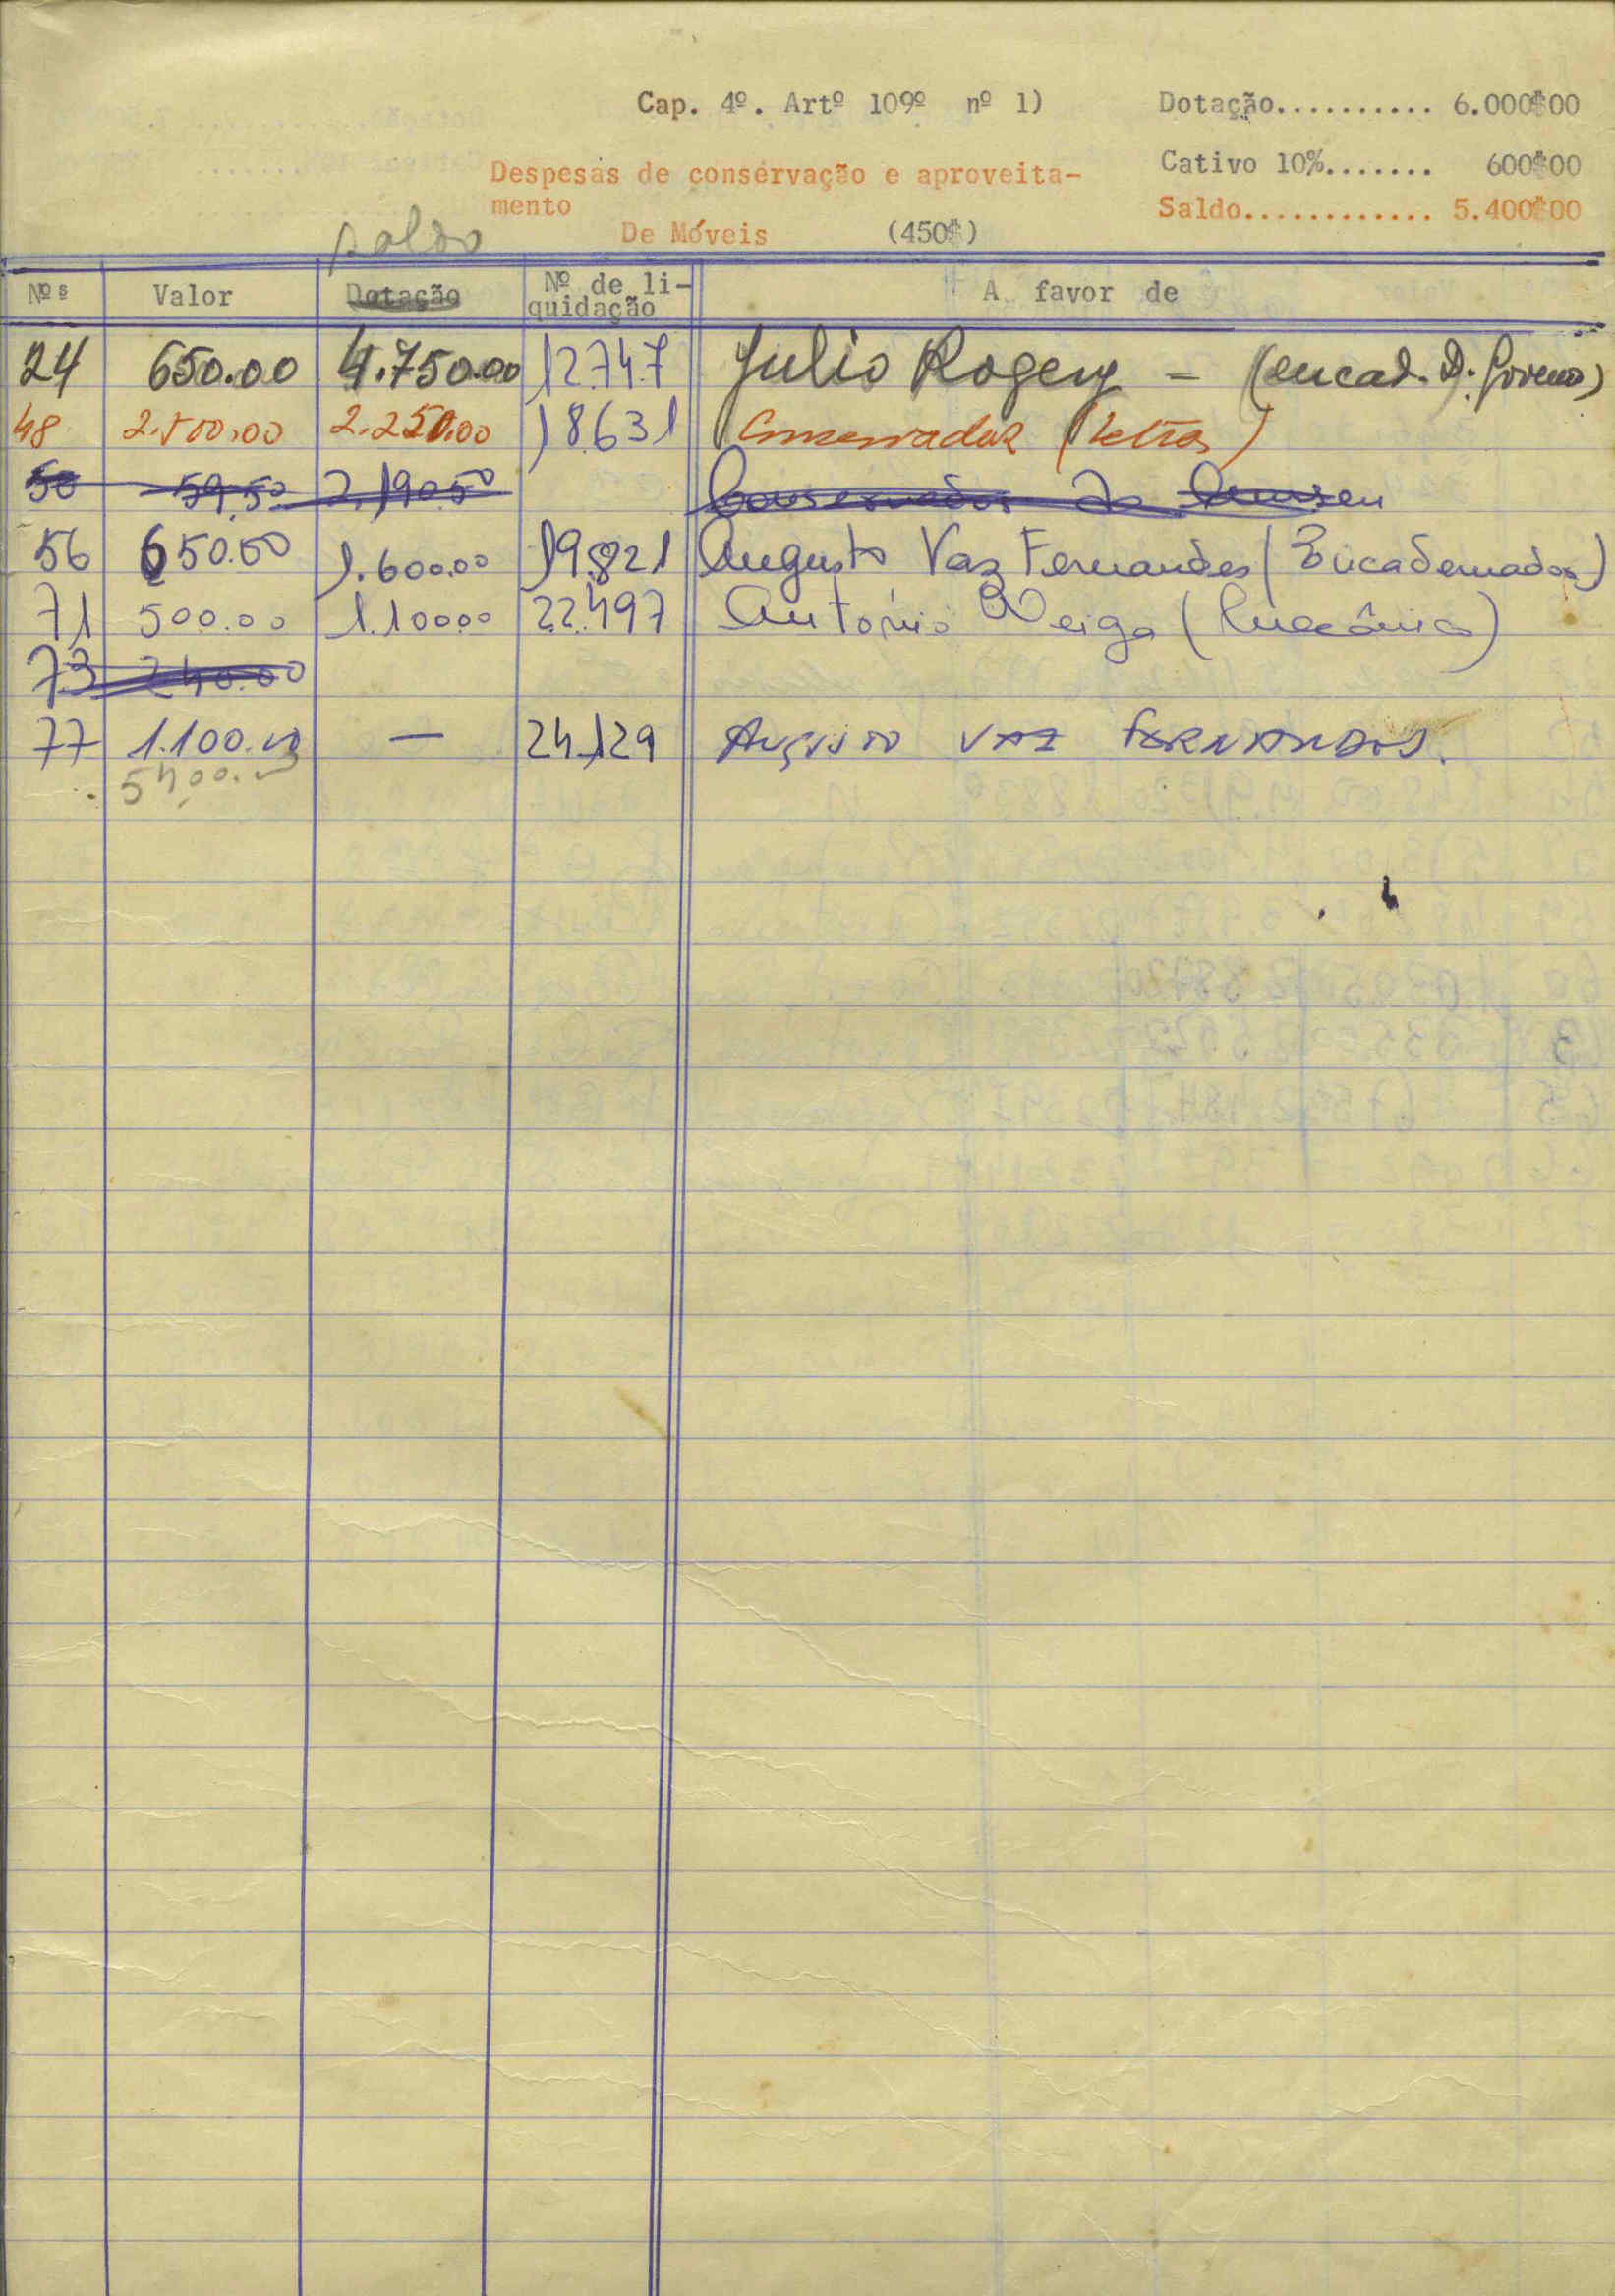 Cap. 4º. Artº 109º nº 1)
Dotação.......... 6.000$00
Cativo 10%....... 600$00
Saldo............ 5.400$00
Despesas de conservação e aproveita-
mento
De Móveis (450$)
saldo
Nºs Valor Dotação Nº de li-
quidação A favor de
24 650.00 4.750.00 12.747 Julio Rogery - (encad. D. Governo)
48 2.500,00 2.250.00 18.631 Conservador (Letras)
50 59.50 2.190.50 Conservador do Museu
56 650.00 1.600.00 19.821 Augusto Vaz Fernandes (Encadernador)
71 500.00 1.100.00 22.497 António Veiga (Mecânico)
73 240.00
77 1.100.00 — 24.129 AUGUSTO VAZ FERNANDES.
5400.00